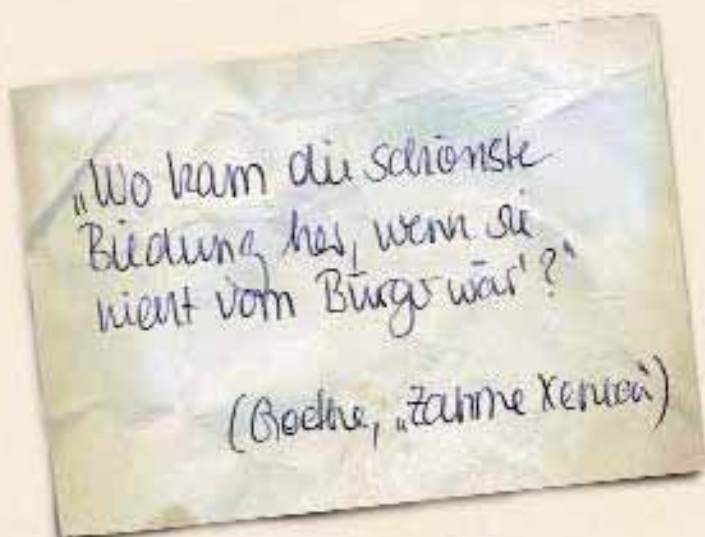 „Wo kam die schönste
Bildung her, wenn sie
nicht vom Bürger wär'?“
(Goethe, „Zahme Xenien“)